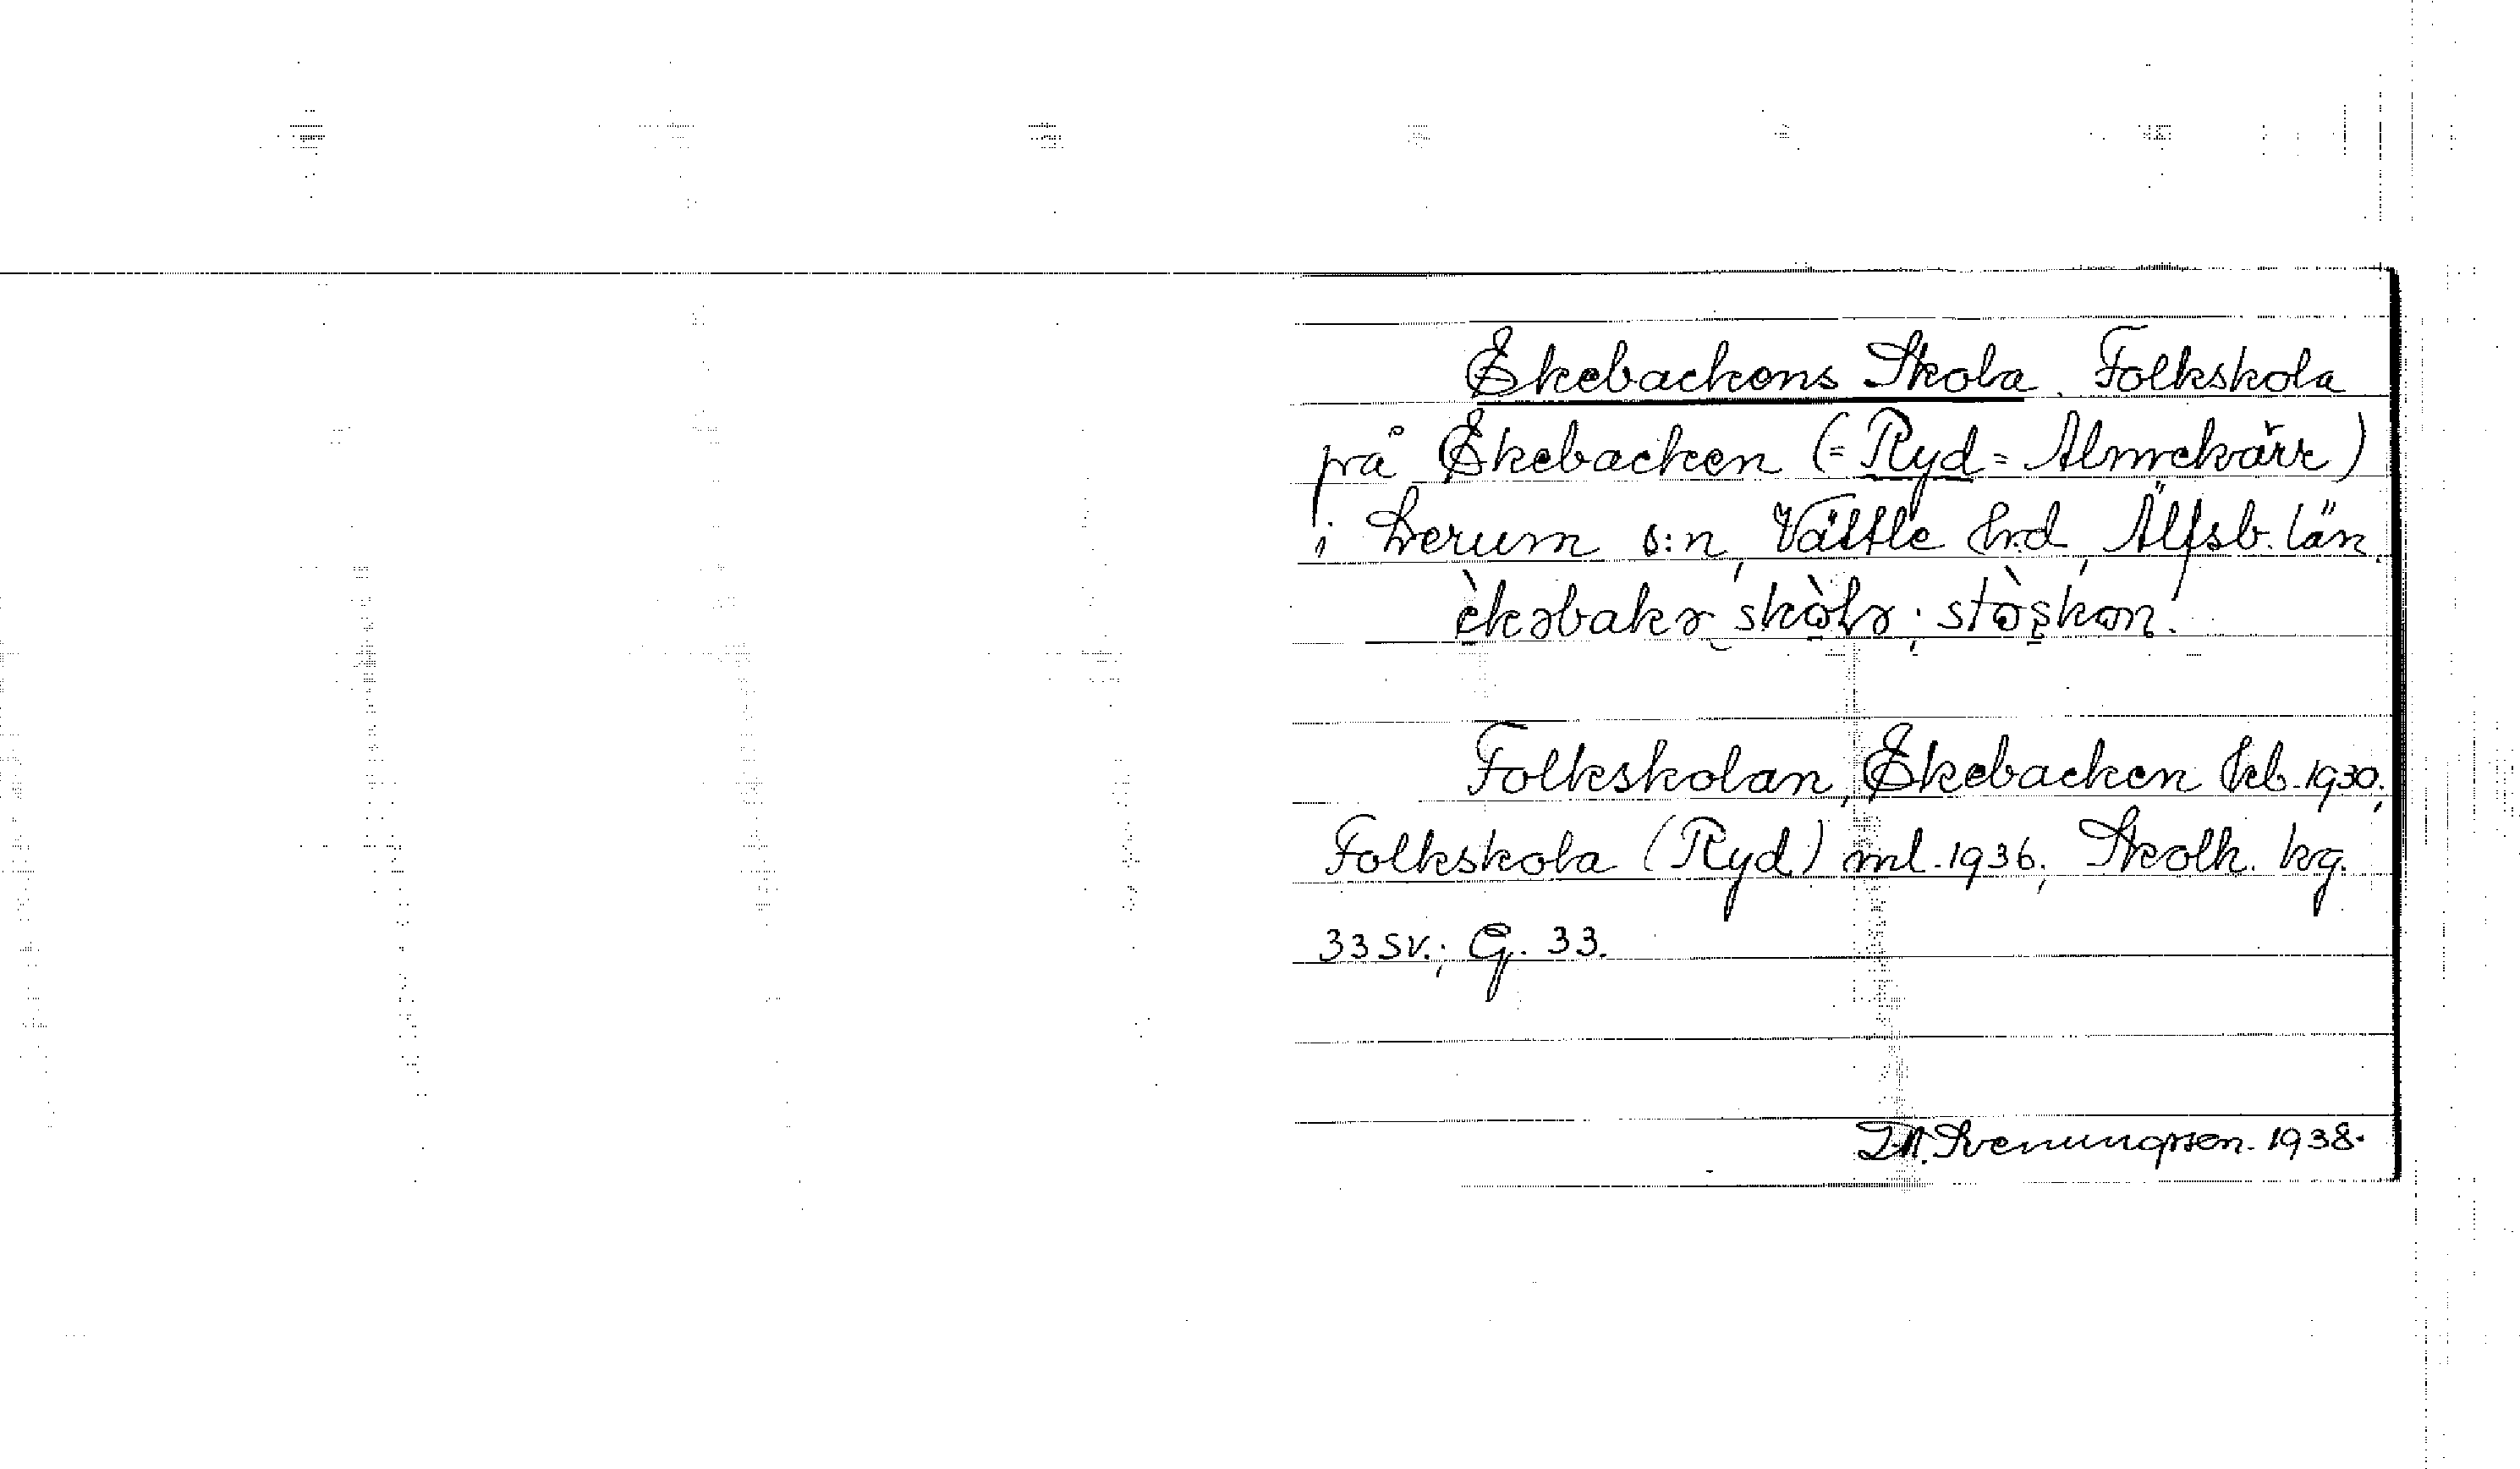 Ekebackens Skola, Folkskola
på Ekebacken (= Ryd = Almekärr)
i Lerum s:n, Vättle hrd, Älfsb. län.
Folkskolan, Ekebacken kb. 1930;
Folkskola (Ryd) ml. 1936; Skolk. kg.
33 SV.; G. 33.
Svenungsson. 1938.